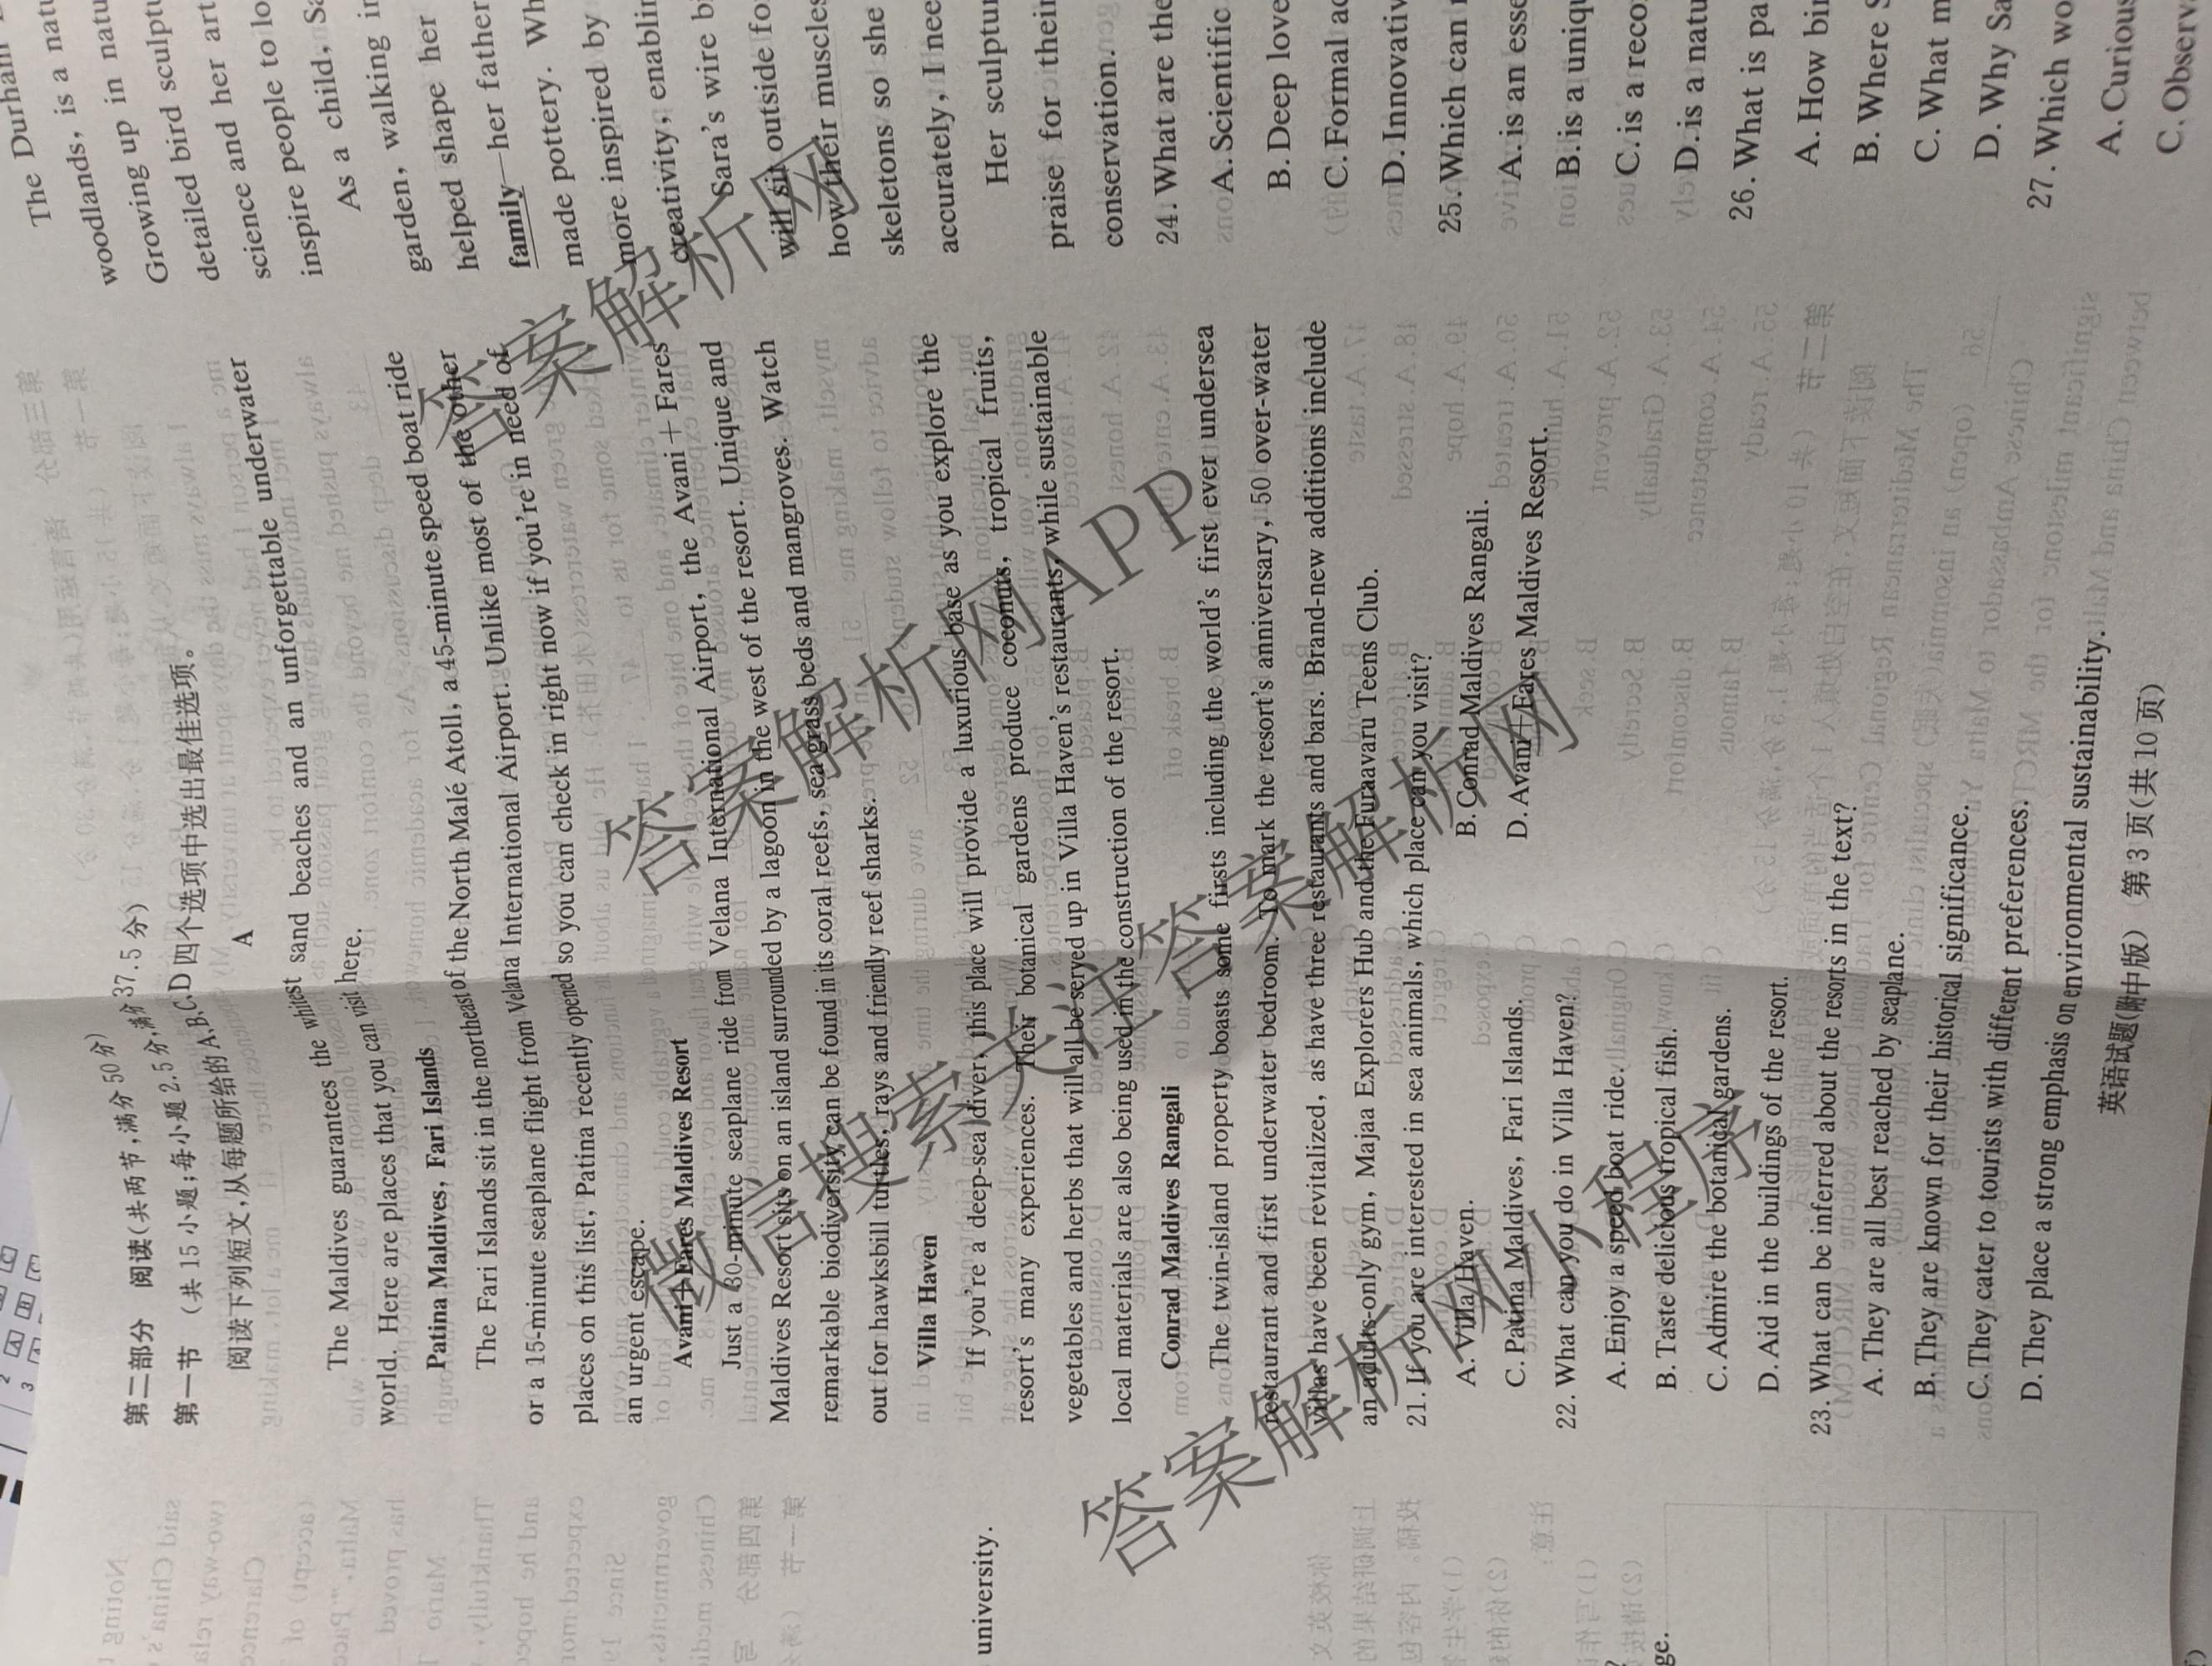 第二部分 阅读(共两节,满分 50 分)
第一节 (共 15 小题;每小题 2.5 分,满分 37.5 分)
阅读下列短文,从每题所给的 A、B、C、D 四个选项中选出最佳选项。
A
The Maldives guarantees the whitest sand beaches and an unforgettable underwater
world. Here are places that you can visit here.
Patina Maldives, Fari Islands
The Fari Islands sit in the northeast of the North Malé Atoll, a 45-minute speed boat ride
or a 15-minute seaplane flight from Velana International Airport. Unlike most of the other
places on this list, Patina recently opened so you can check in right now if you're in need of
an urgent escape.
Avani+Fares Maldives Resort
Just a 30-minute seaplane ride from Velana International Airport, the Avani + Fares
Maldives Resort sits on an island surrounded by a lagoon in the west of the resort. Unique and
remarkable biodiversity can be found in its coral reefs, seagrass beds and mangroves. Watch
out for hawksbill turtles, rays and friendly reef sharks.
Villa Haven
If you're a deep-sea diver, this place will provide a luxurious base as you explore the
resort's many experiences. Their botanical gardens produce coconuts, tropical fruits,
vegetables and herbs that will all be served up in Villa Haven's restaurants, while sustainable
local materials are also being used in the construction of the resort.
Conrad Maldives Rangali
The twin-island property boasts some firsts including the world's first ever undersea
restaurant and first underwater bedroom. To mark the resort's anniversary, 50 over-water
villas have been revitalized, as have three restaurants and bars. Brand-new additions include
an adults-only gym, Majaa Explorers Hub and the Furaavaru Teens Club.
21. If you are interested in sea animals, which place can you visit?
A. Villa Haven. B. Conrad Maldives Rangali.
C. Patina Maldives, Fari Islands. D. Avani+Fares Maldives Resort.
22. What can you do in Villa Haven?
A. Enjoy a speed boat ride.
B. Taste delicious tropical fish.
C. Admire the botanical gardens.
D. Aid in the buildings of the resort.
23. What can be inferred about the resorts in the text?
A. They are all best reached by seaplane.
B. They are known for their historical significance.
C. They cater to tourists with different preferences.
D. They place a strong emphasis on environmental sustainability.
英语试题(附中版) 第 3 页(共 10 页)
The Durham
woodlands, is a natu
Growing up in natu
detailed bird sculptu
science and her art
inspire people to lo
As a child, Sa
garden, walking in
helped shape her
family—her father
made pottery. Wh
more inspired by
creativity, enablin
Sara's wire bi
will sit outside fo
how their muscles
skeletons so she
accurately, I nee
Her sculptur
praise for their
conservation.
24. What are the
A. Scientific
B. Deep love
C. Formal ac
D. Innovativ
25. Which can r
A. is an esse
B. is a uniqu
C. is a recor
D. is a natu
26. What is pa
A. How bir
B. Where S
C. What m
D. Why Sa
27. Which wo
A. Curious
C. Observ
university.
ge.
答案解析网
答案解析网APP
微信搜索关注答案解析网
答案解析网小程序